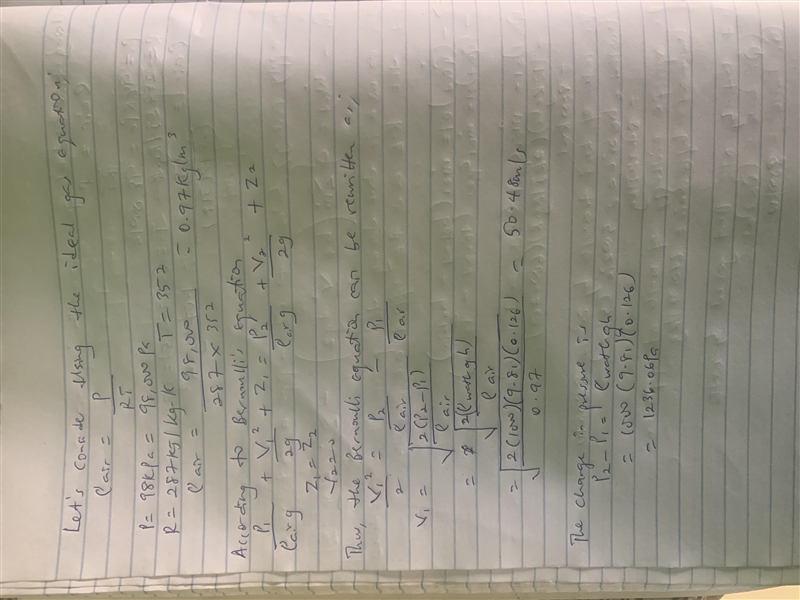 Let's consider using the ideal gas equation;
ρair = P / RT
P = 98kPa = 98,000Pa
R = 287kJ/kg·K T = 352
ρair = 98,000 / 287 × 352 = 0.97kg/m³
According to Bernoulli's equation
P₁/ρair g + V₁²/2g + Z₁ = P₂/ρair g + V₂²/2g + Z₂
Z₁ = Z₂
V₂ = 0
Thus, the Bernoulli equation can be rewritten as;
V₁²/2 = P₂/ρair = P₁/ρair
V₁ = √2(P₂-P₁)/ρair
= √2(ρwater gh)/ρair
= √2(100)(9.81)(0.126)/0.97 = 50.48m/s
The change in pressure is
P₂-P₁ = ρwater gh
= 1000 (9.81)(0.126)
= 1236.06Pa